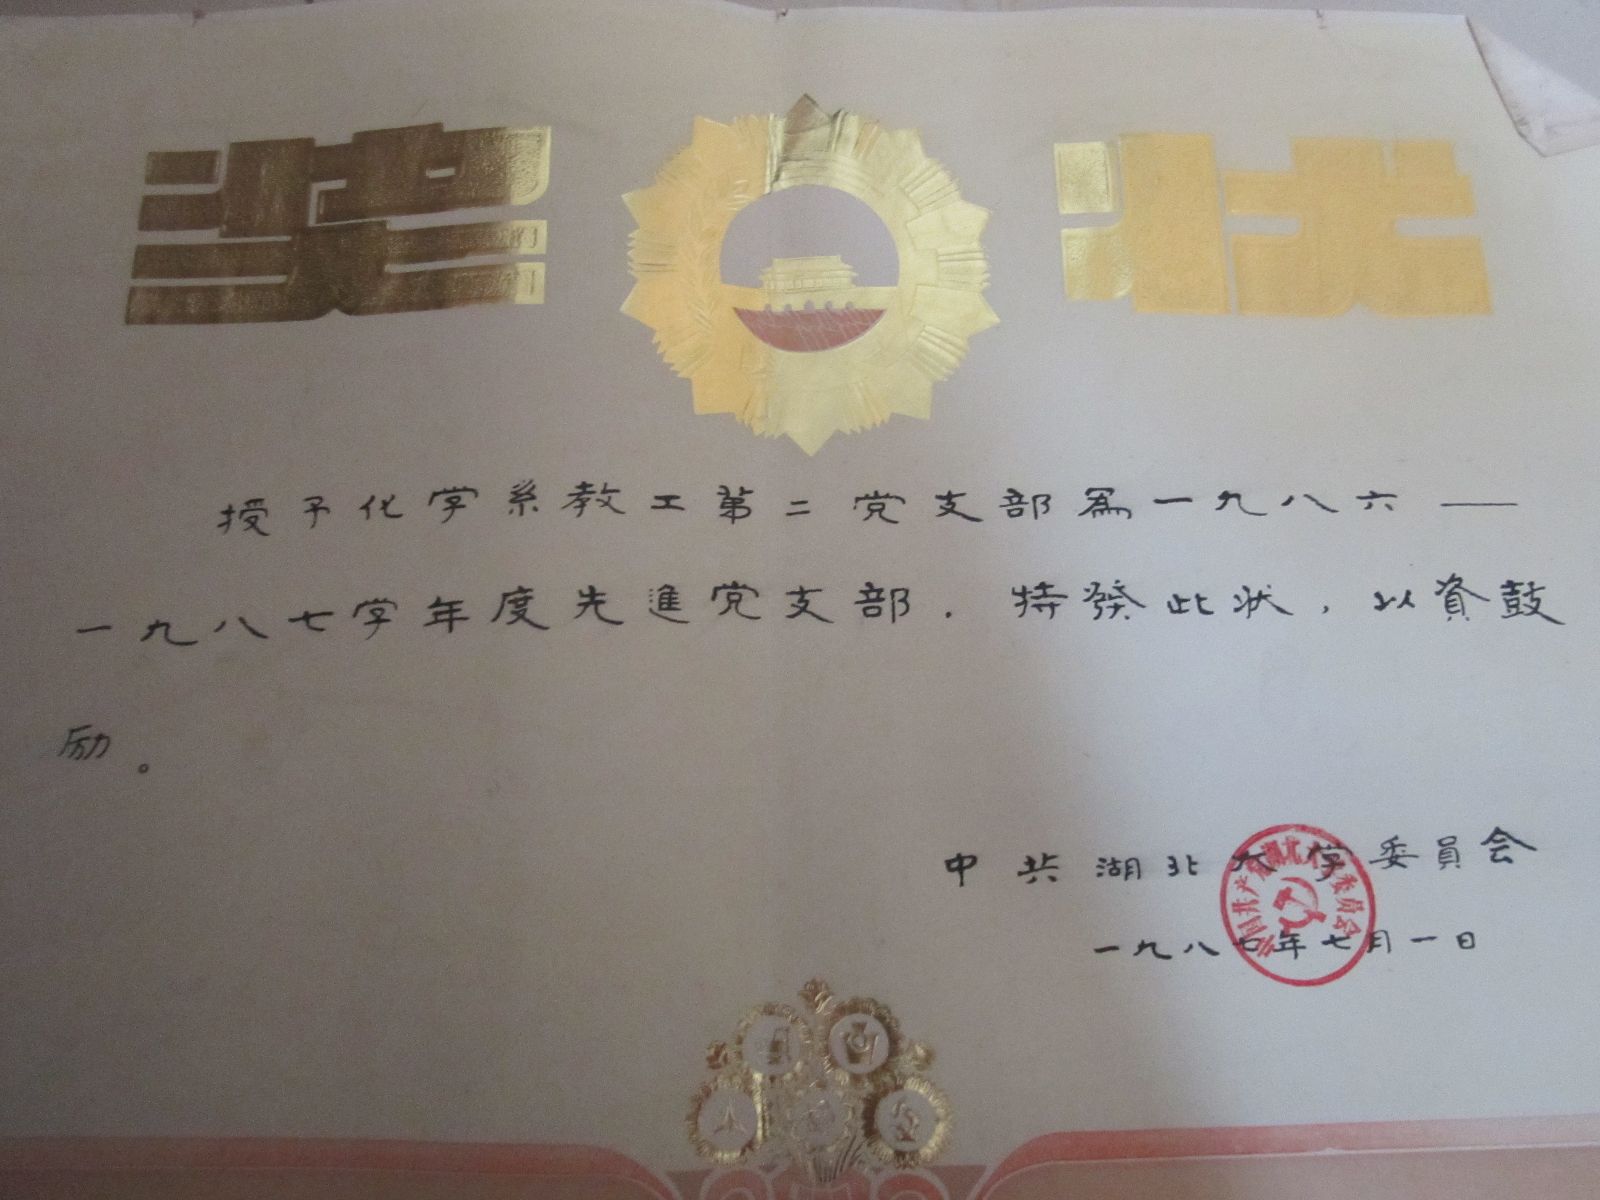 奖状
授予化学系教工第二党支部為一九八六——
一九八七学年度先進党支部．特發此状，以資鼓
励。
中共湖北大学委員会
一九八七年七月一日
中国共产党湖北大学委员会